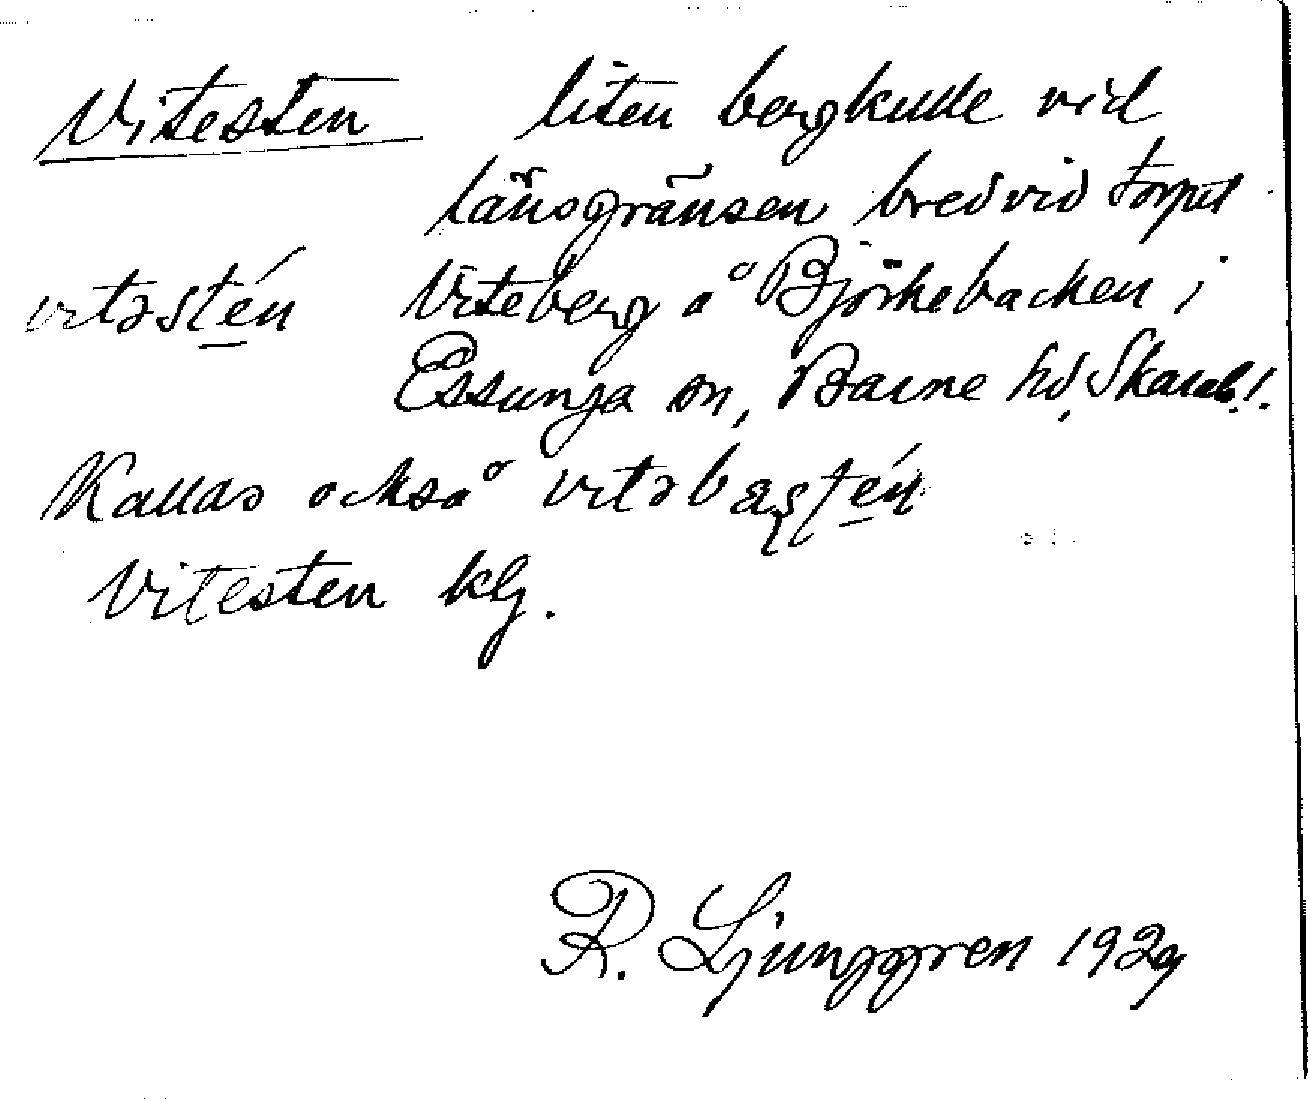 Vitesten liten bergkulle vid
länsgränsen bredvid torpet
vitəstén Viteberg å Björkebacken i
Essunga sn, Barne hd, Skarab.l.
Kallas också vitəbæʂtén
Vitesten klg.
R. Ljunggren 1929